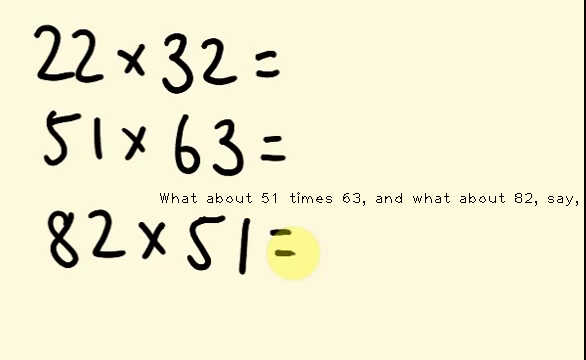 22 × 32 =
51 × 63 =
What about 51 times 63, and what about 82, say,
82 × 51 =